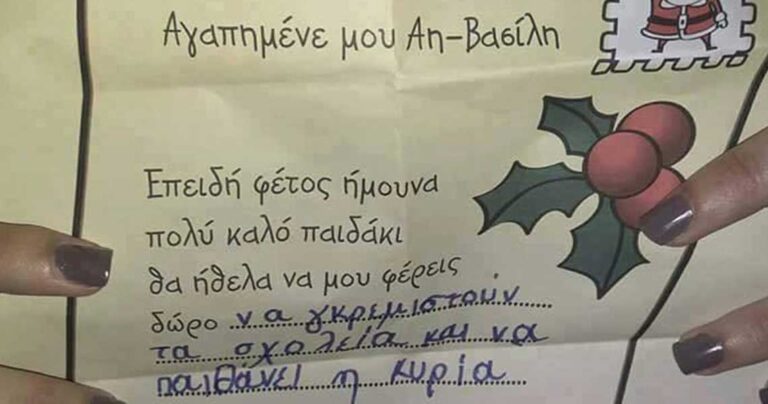 Αγαπημένε μου Αη-Βασίλη
Επειδή φέτος ήμουνα
πολύ καλό παιδάκι
θα ήθελα να μου φέρεις
δώρο να γκρεμιστούν
τα σχολεία και να
παιθάνει η κυρία